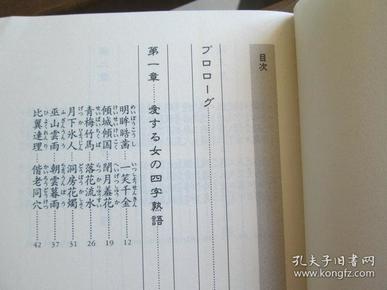 目次
プロローグ……
第一章……愛する女の四字熟語……
明眸皓歯 一笑千金 12
傾城傾国 閉月羞花 19
青梅竹馬 落花流水 26
月下氷人 洞房花燭 31
巫山雲雨 朝雲暮雨 37
比翼連理 偕老同穴 42
孔夫子旧书网